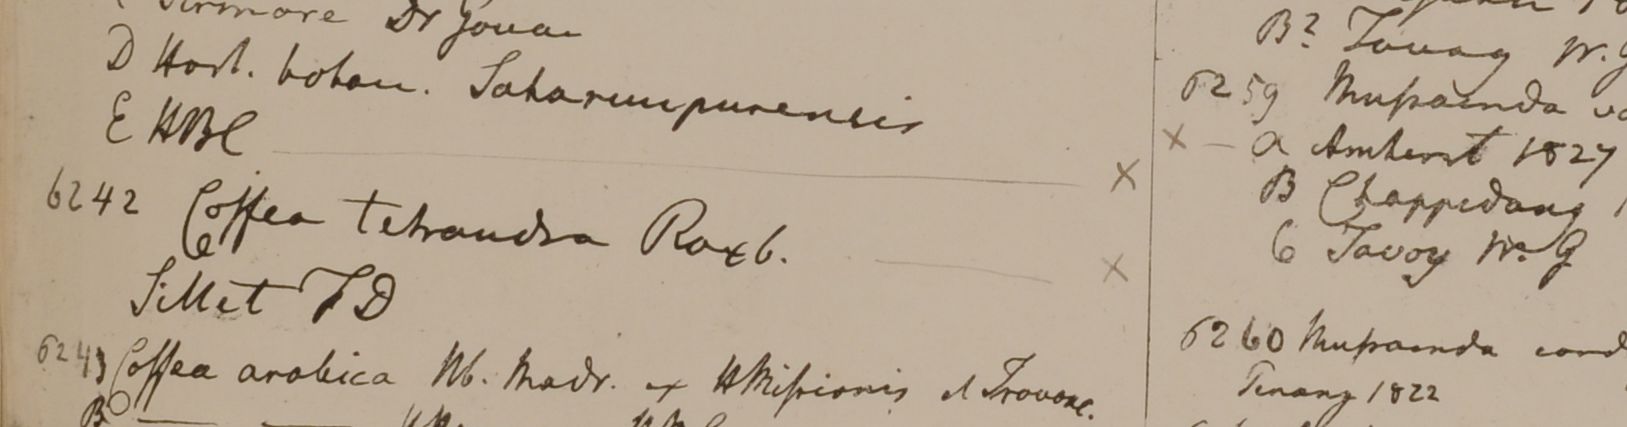 Sirmore Dr Govan
D Hort. botan. Saharunpurensis
E HBC
6242 Coffea tetrandra Roxb.
Sillet FD
6243 Coffea arabica Hb. Madr. ex HMissionis et Travanc.
B
B? Tavoy W. G
6259 Mussaenda
x – a Amherst 1827
B Chappedang
C Tavoy W. G
6260 Mussaenda cord
Penang 1822